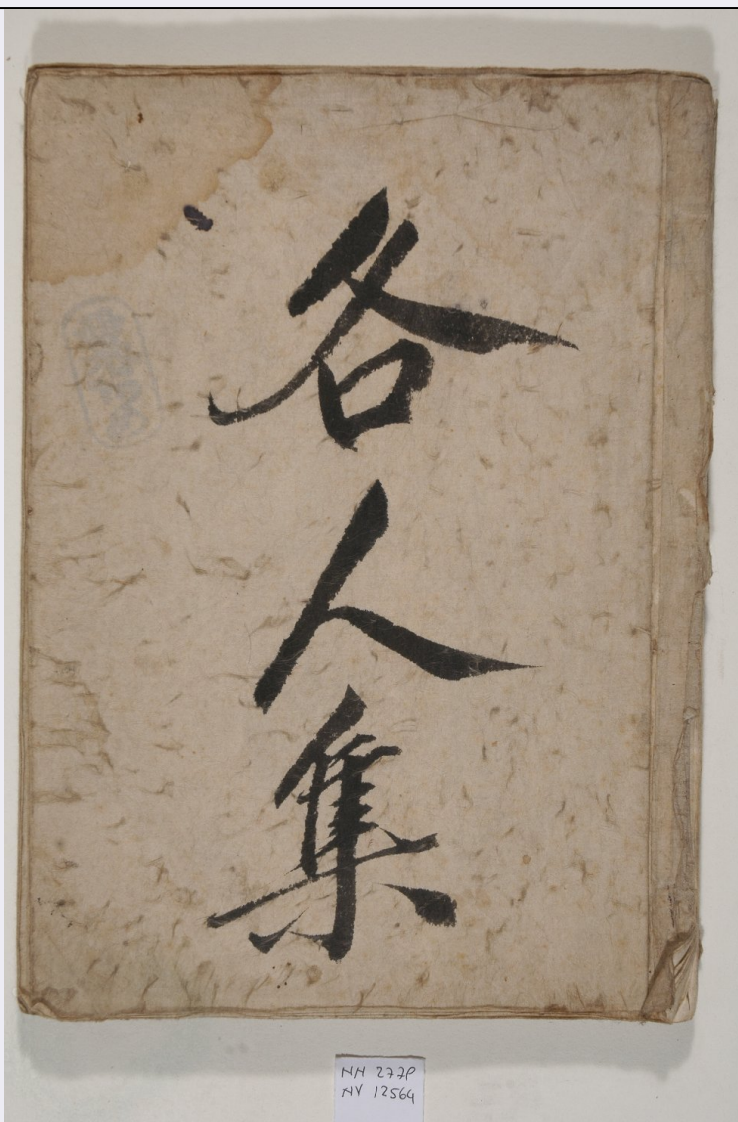 各人集
NH 277P
NV 12564